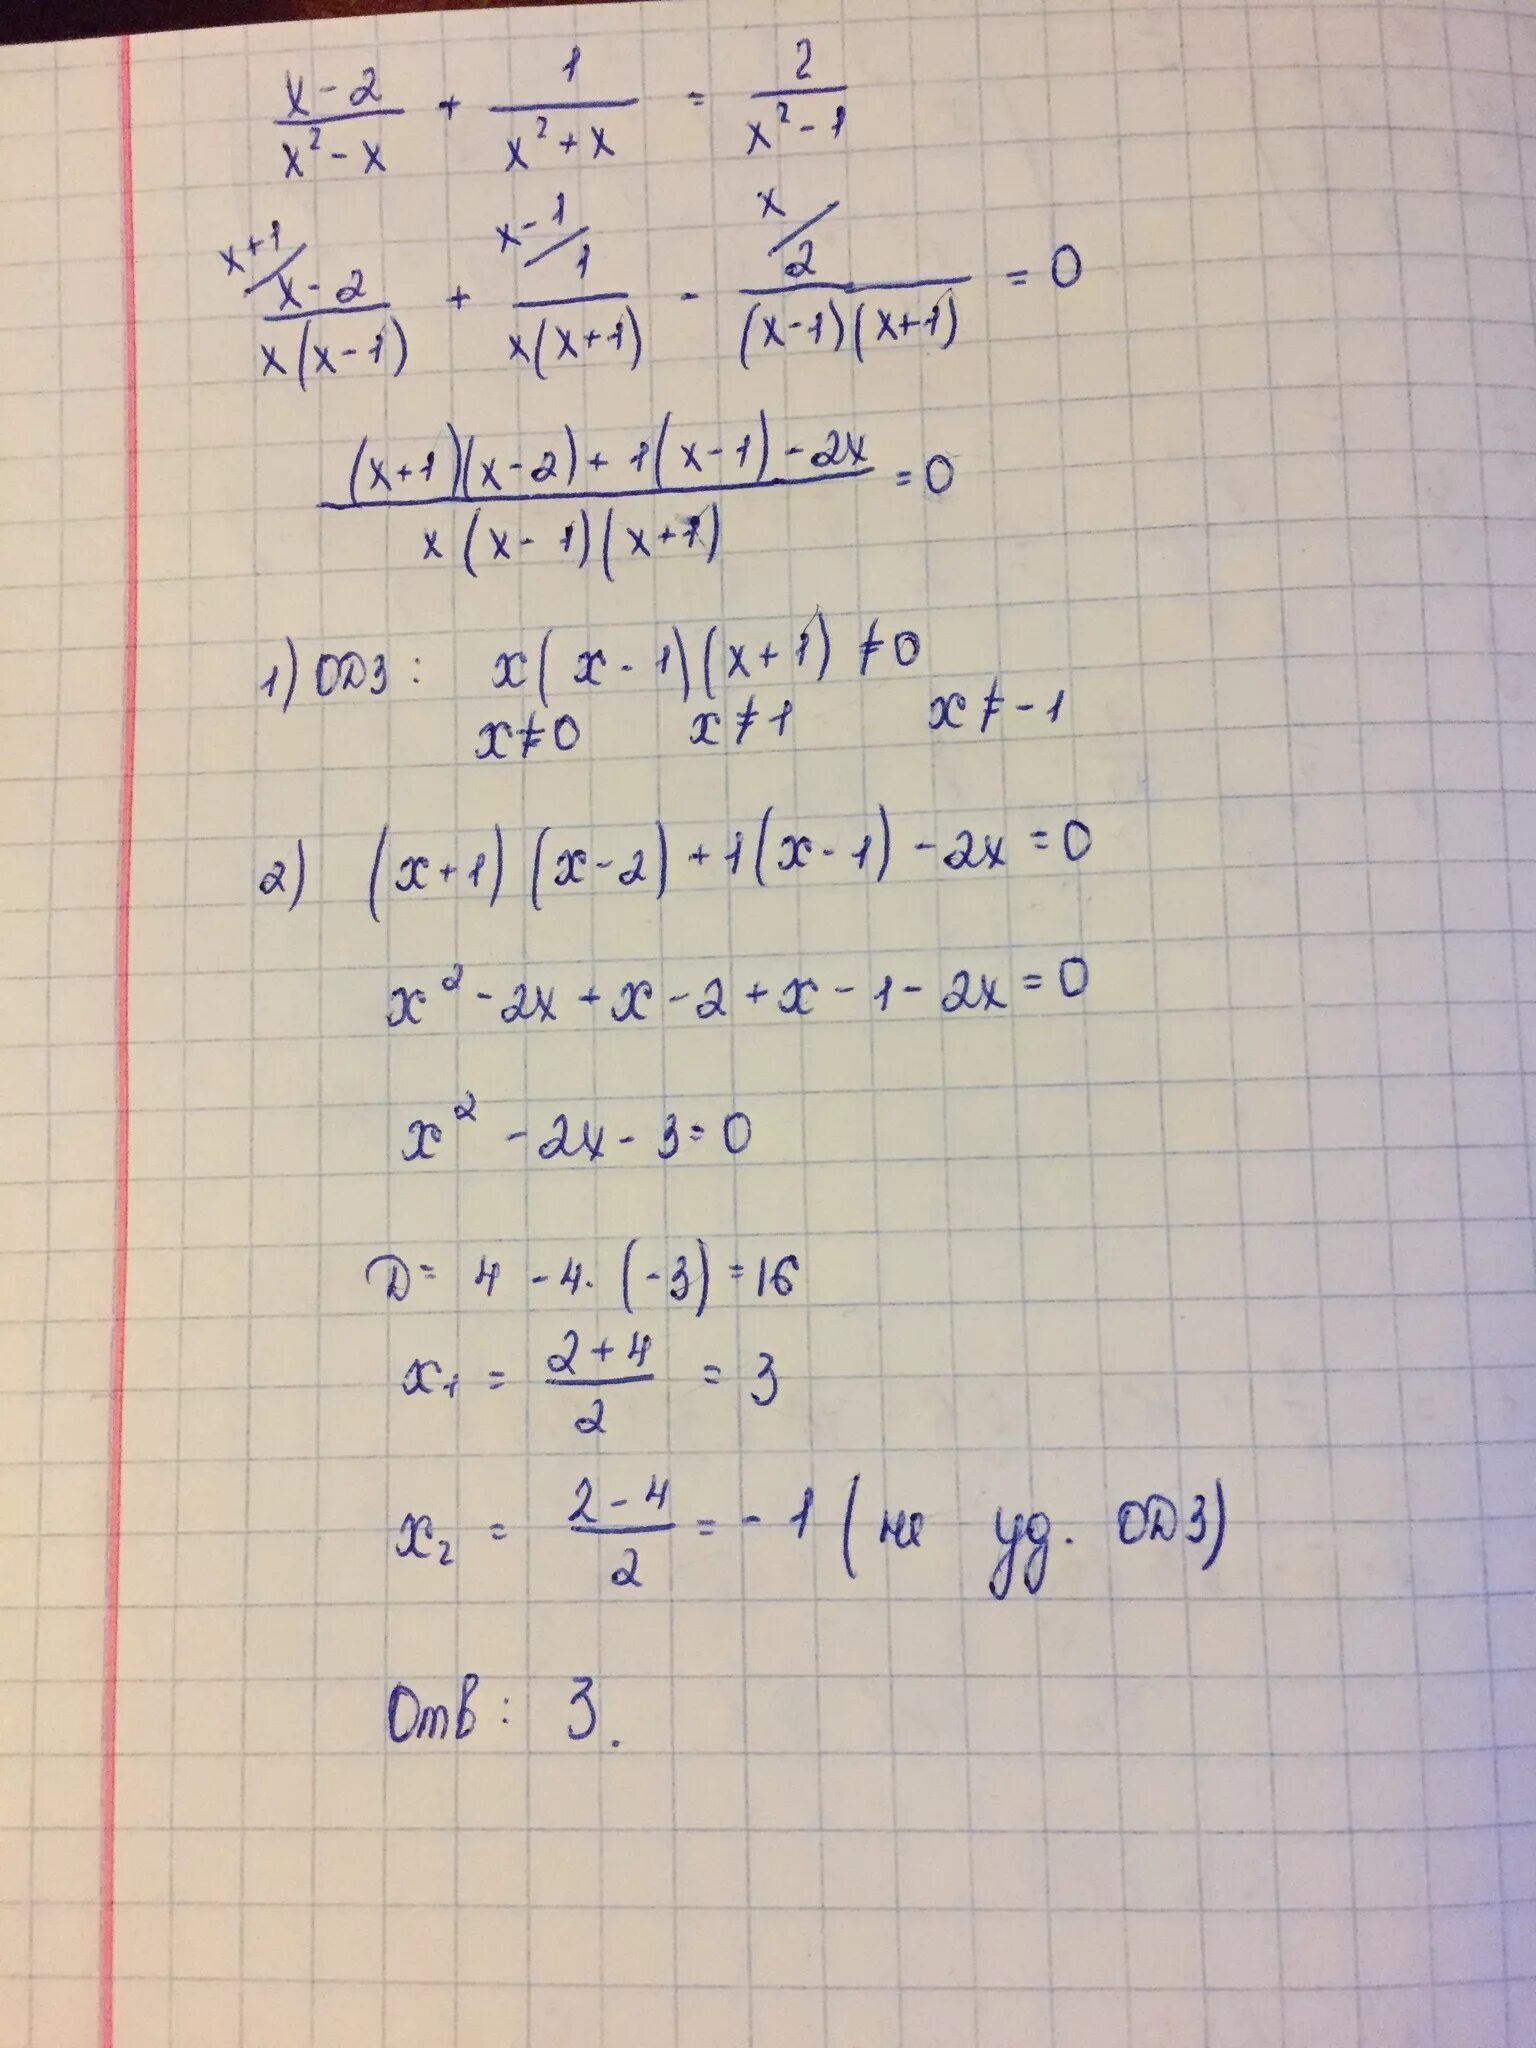 (x-2)/(x²-x) + 1/(x²+x) = 2/(x²-1)
x+1/ x-1/ x/
(x-2)/(x(x-1)) + 1/(x(x+1)) - 2/((x-1)(x+1)) = 0
((x+1)(x-2)+1(x-1)-2x)/(x(x-1)(x+1)) = 0
1) ОДЗ: x(x-1)(x+1)≠0
x≠0 x≠1 x≠-1
2) (x+1)(x-2)+1(x-1)-2x=0
x²-2x+x-2+x-1-2x=0
x²-2x-3=0
Д= 4-4·(-3)=16
x₁ = (2+4)/2 = 3
x₂ = (2-4)/2 = -1 (не уд. ОДЗ)
Отв: 3.